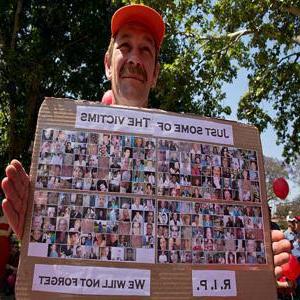 Just some of The victims
We will not forget
R.I.P.